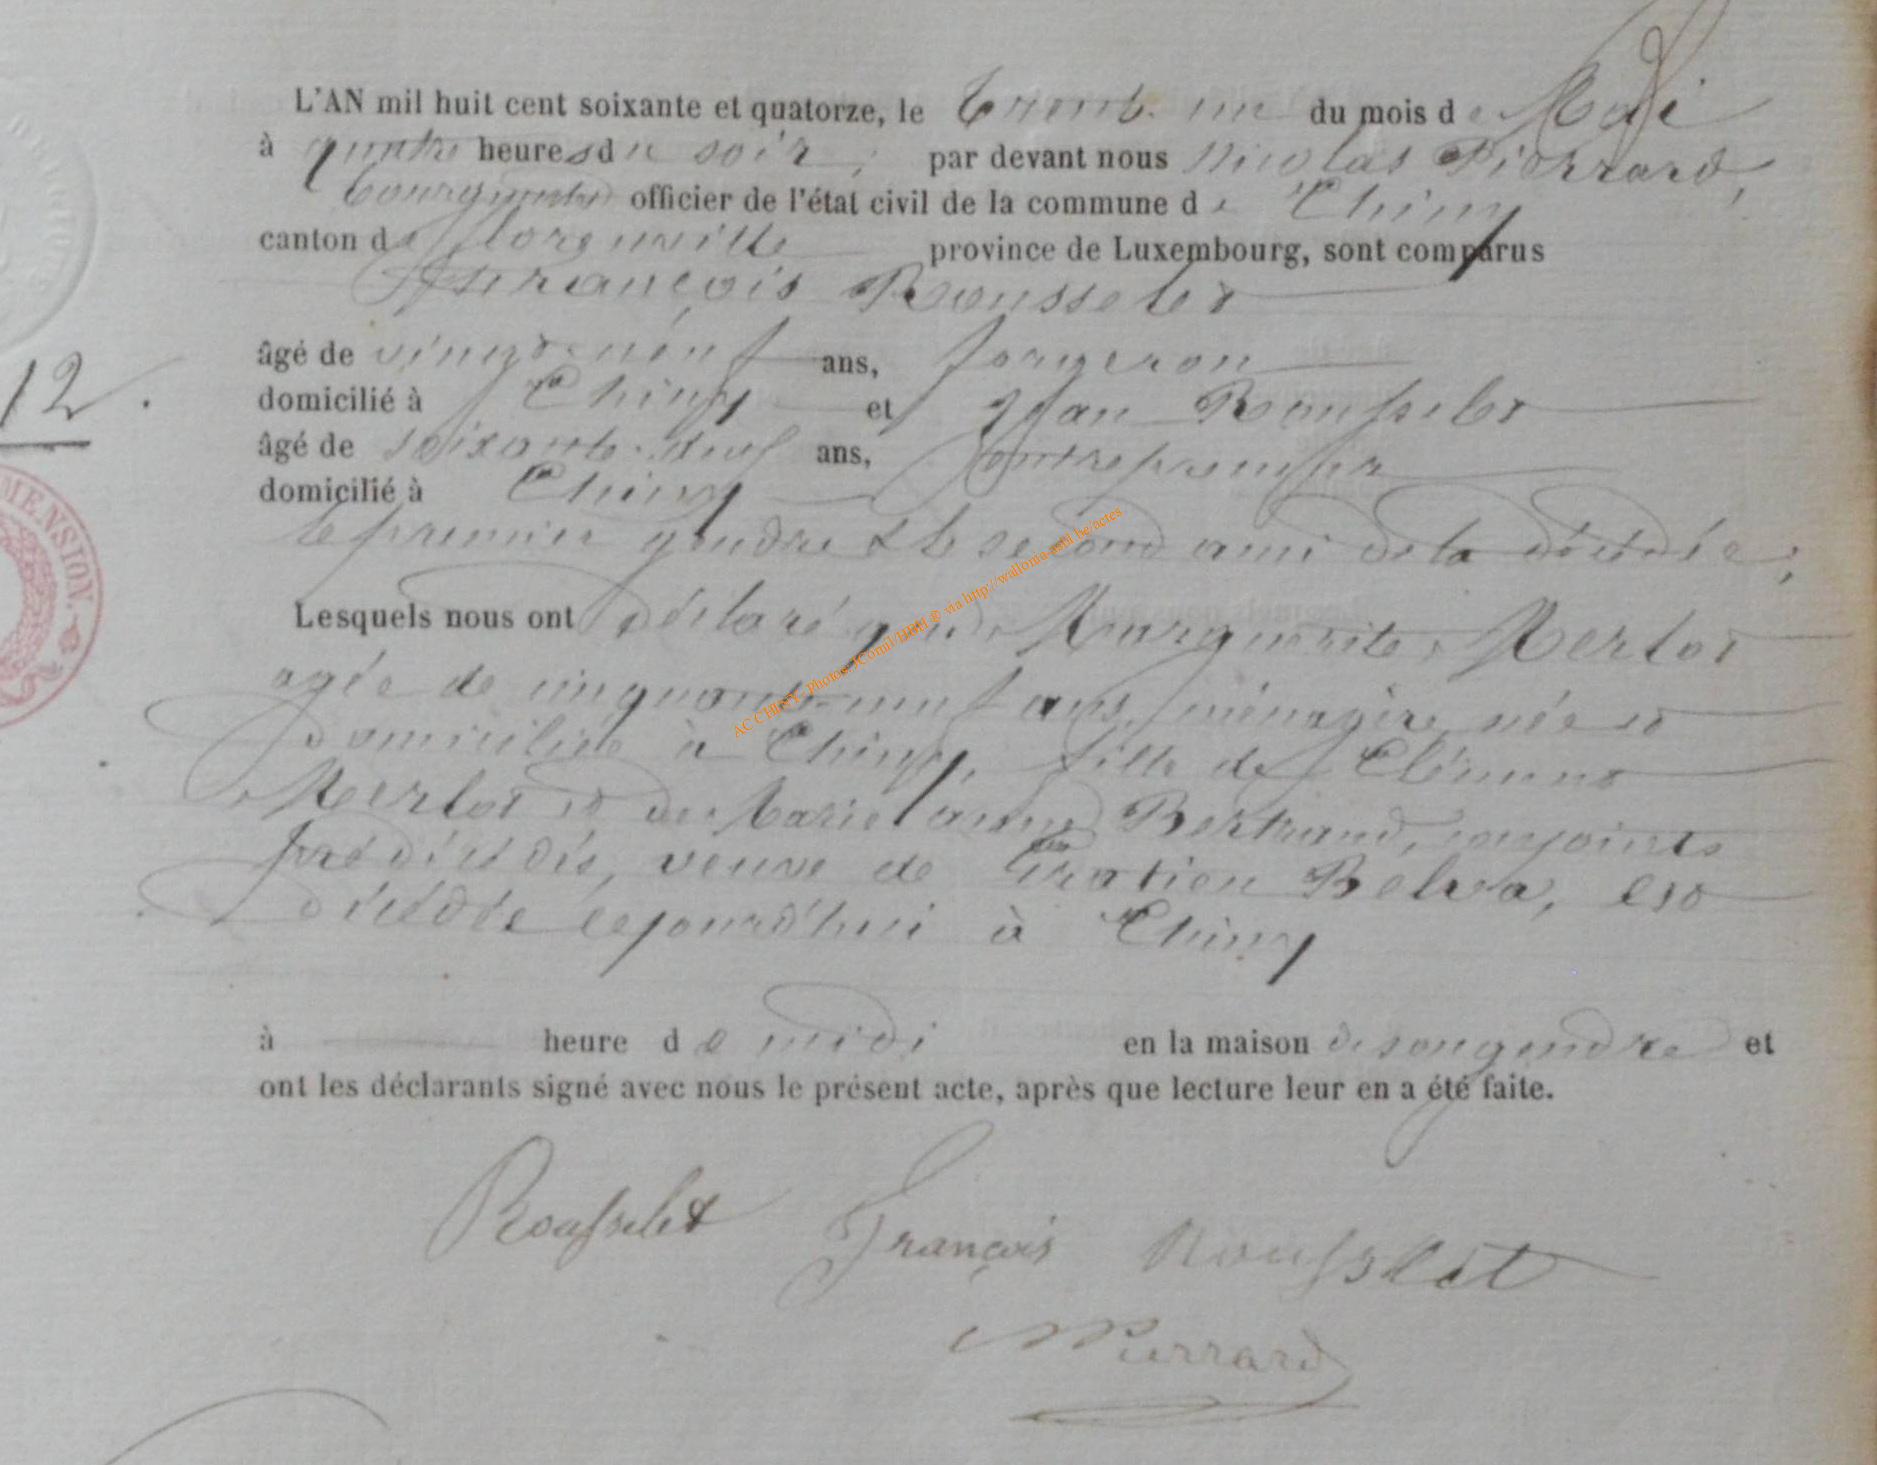 L'AN mil huit cent soixante et quatorze, le trente un du mois de Mai
à quatre heures du soir, par devant nous Nicolas Pierrard,
bourgmestre officier de l'état civil de la commune de Chiny
canton de Florenville province de Luxembourg, sont comparus
François Rousselet
âgé de vingt-neuf ans, forgeron
12.
domicilié à Chiny et Jean Rousselet
âgé de soixante-neuf ans, entrepreneur
domicilié à Chiny
le premier gendre & le second ami de la décédée;
MENSION.
Lesquels nous ont déclaré que Marguerite Merlot
agée de cinquante-neuf ans, ménagère née et
domiciliée à Chiny, fille de Clément
Merlot et de Marie anne Bertrand, conjoints
prédécédés, veuve de Gratien Belva, est
décédée cejourd'hui à Chiny
à heure de midi en la maison de son gendre et
ont les déclarants signé avec nous le présent acte, après que lecture leur en a été faite.
Rousselet François Rousselet
NPierrard
AC CHINY - Photos: JComil/HBH @ via http://wallonia-asbl.be/actes